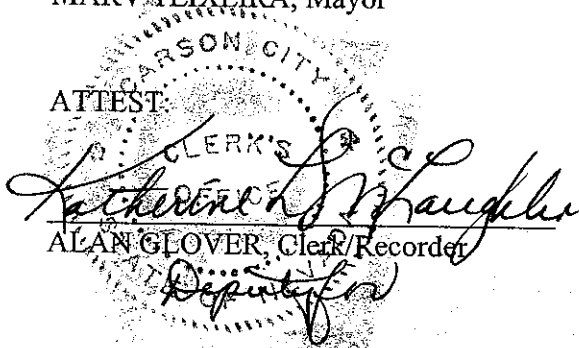 MARV TEIXEIRA, Mayor
CARSON CITY
ATTEST:
CLERK'S
OFFICE
Katherine L. McLaughlin
ALAN GLOVER, Clerk/Recorder
Deputy for